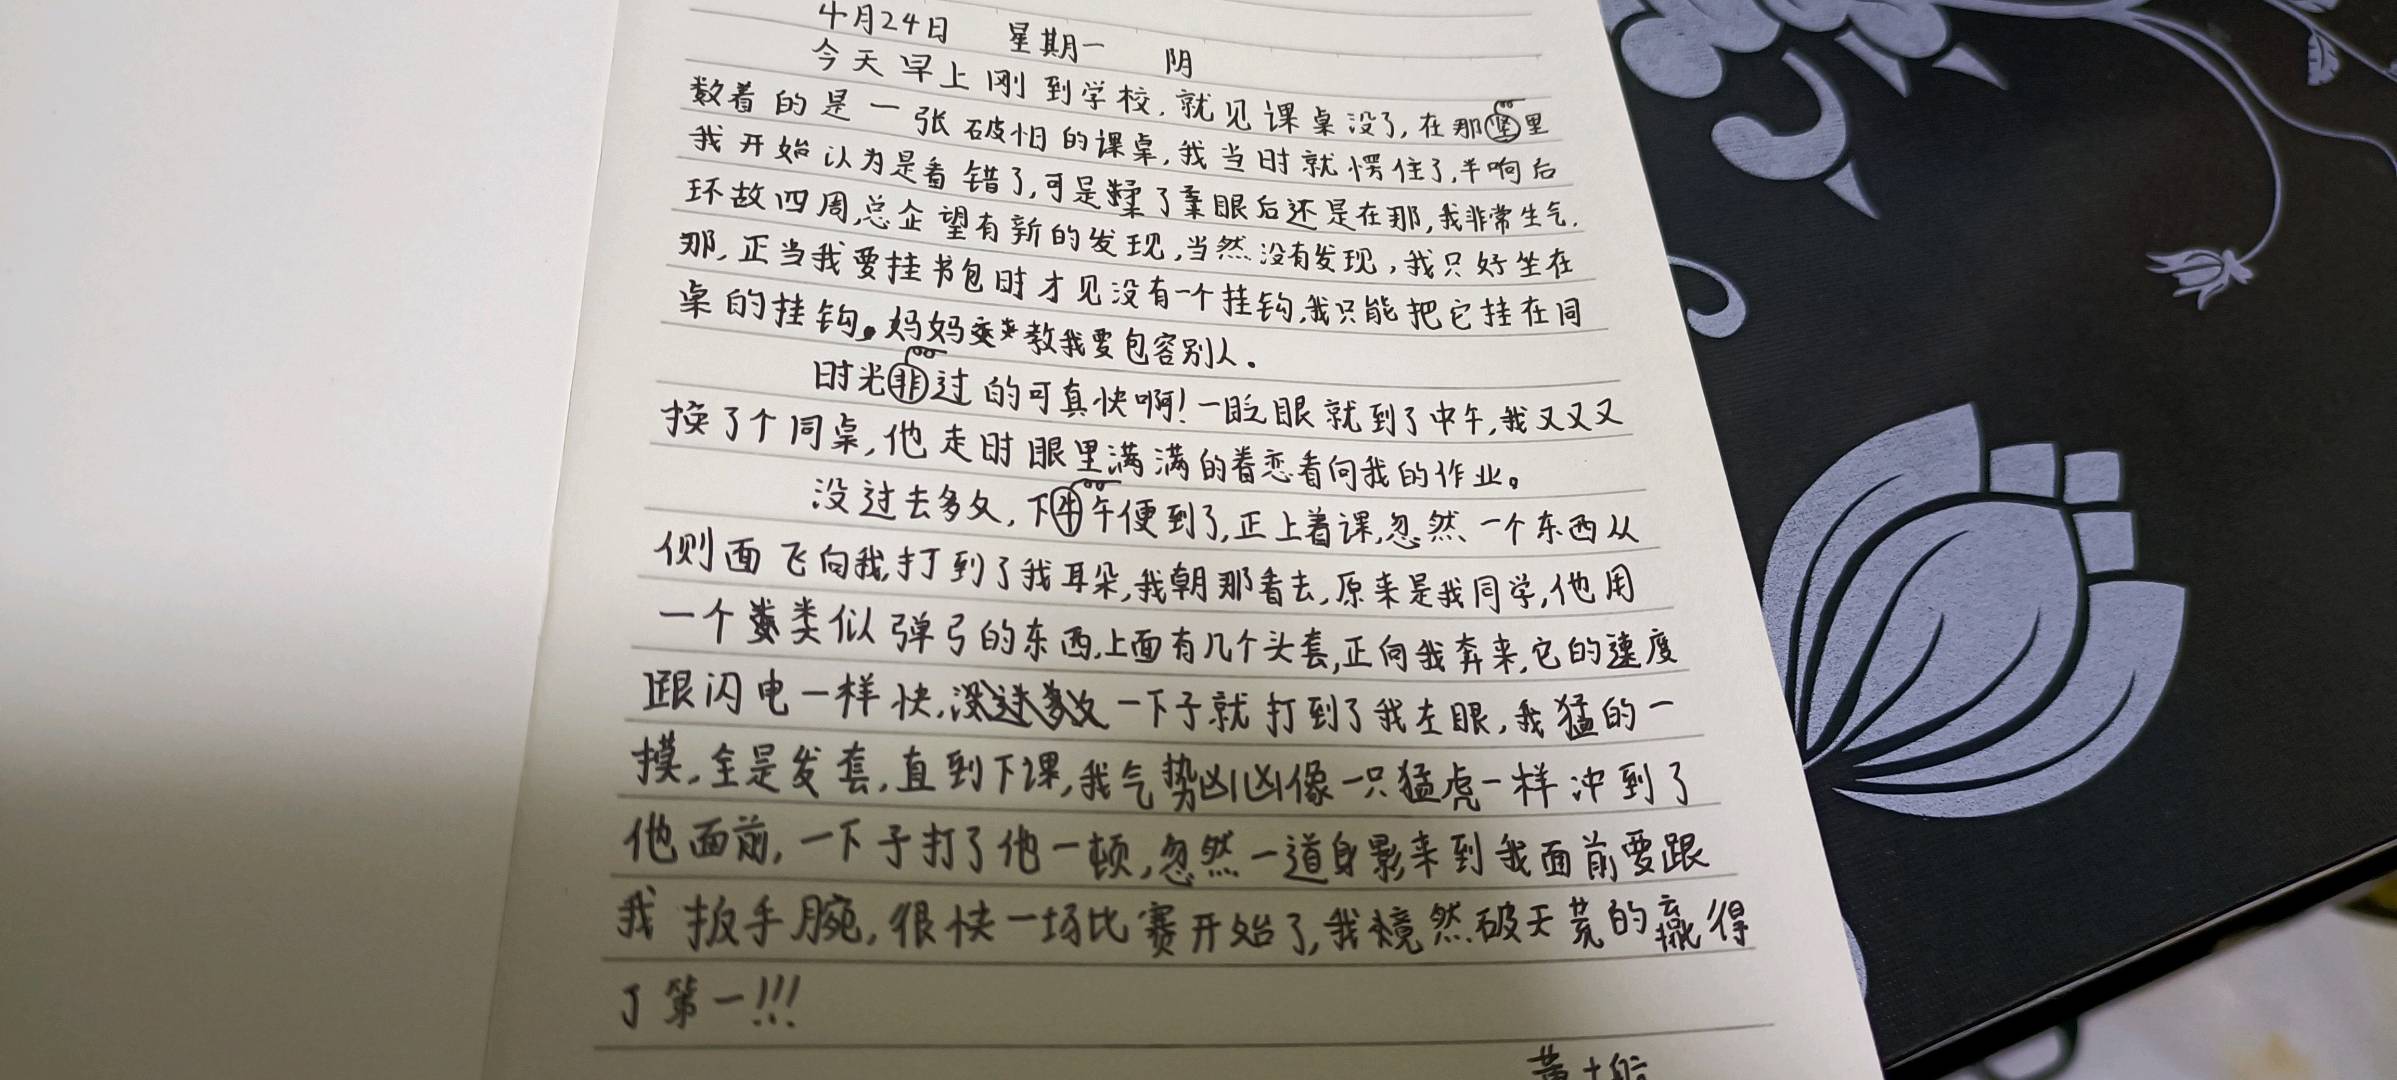 4月24日 星期一 阴
今天早上刚到学校,就见课桌没了,在那里
数着的是一张破旧的课桌,我当时就愣住了,半响后
我开始认为是看错了,可是揉了揉眼后还是在那,我非常生气.
环故四周,总企望有新的发现,当然没有发现,我只好坐在
那,正当我要挂书包时才见没有一个挂钩,我只能把它挂在同
桌的挂钩。妈妈教我要包容别人。
时光过的可真快啊!一眨眼就到了中午,我又又又
换了个同桌,他走时眼里满满的眷恋看向我的作业。
没过去多久,下午便到了,正上着课,忽然一个东西从
侧面飞向我,打到了我耳朵,我朝那看去,原来是我同学,他用
一个类似弹弓的东西,上面有几个头套,正向我奔来,它的速度
跟闪电一样快,一下子就打到了我左眼,我猛的一
摸,全是发套,直到下课,我气势凶凶像一只猛虎一样冲到了
他面前,一下子打了他一顿,忽然一道身影来到我面前要跟
我扳手腕,很快一场比赛开始了,我竟然破天荒的赢得
了第一!!!